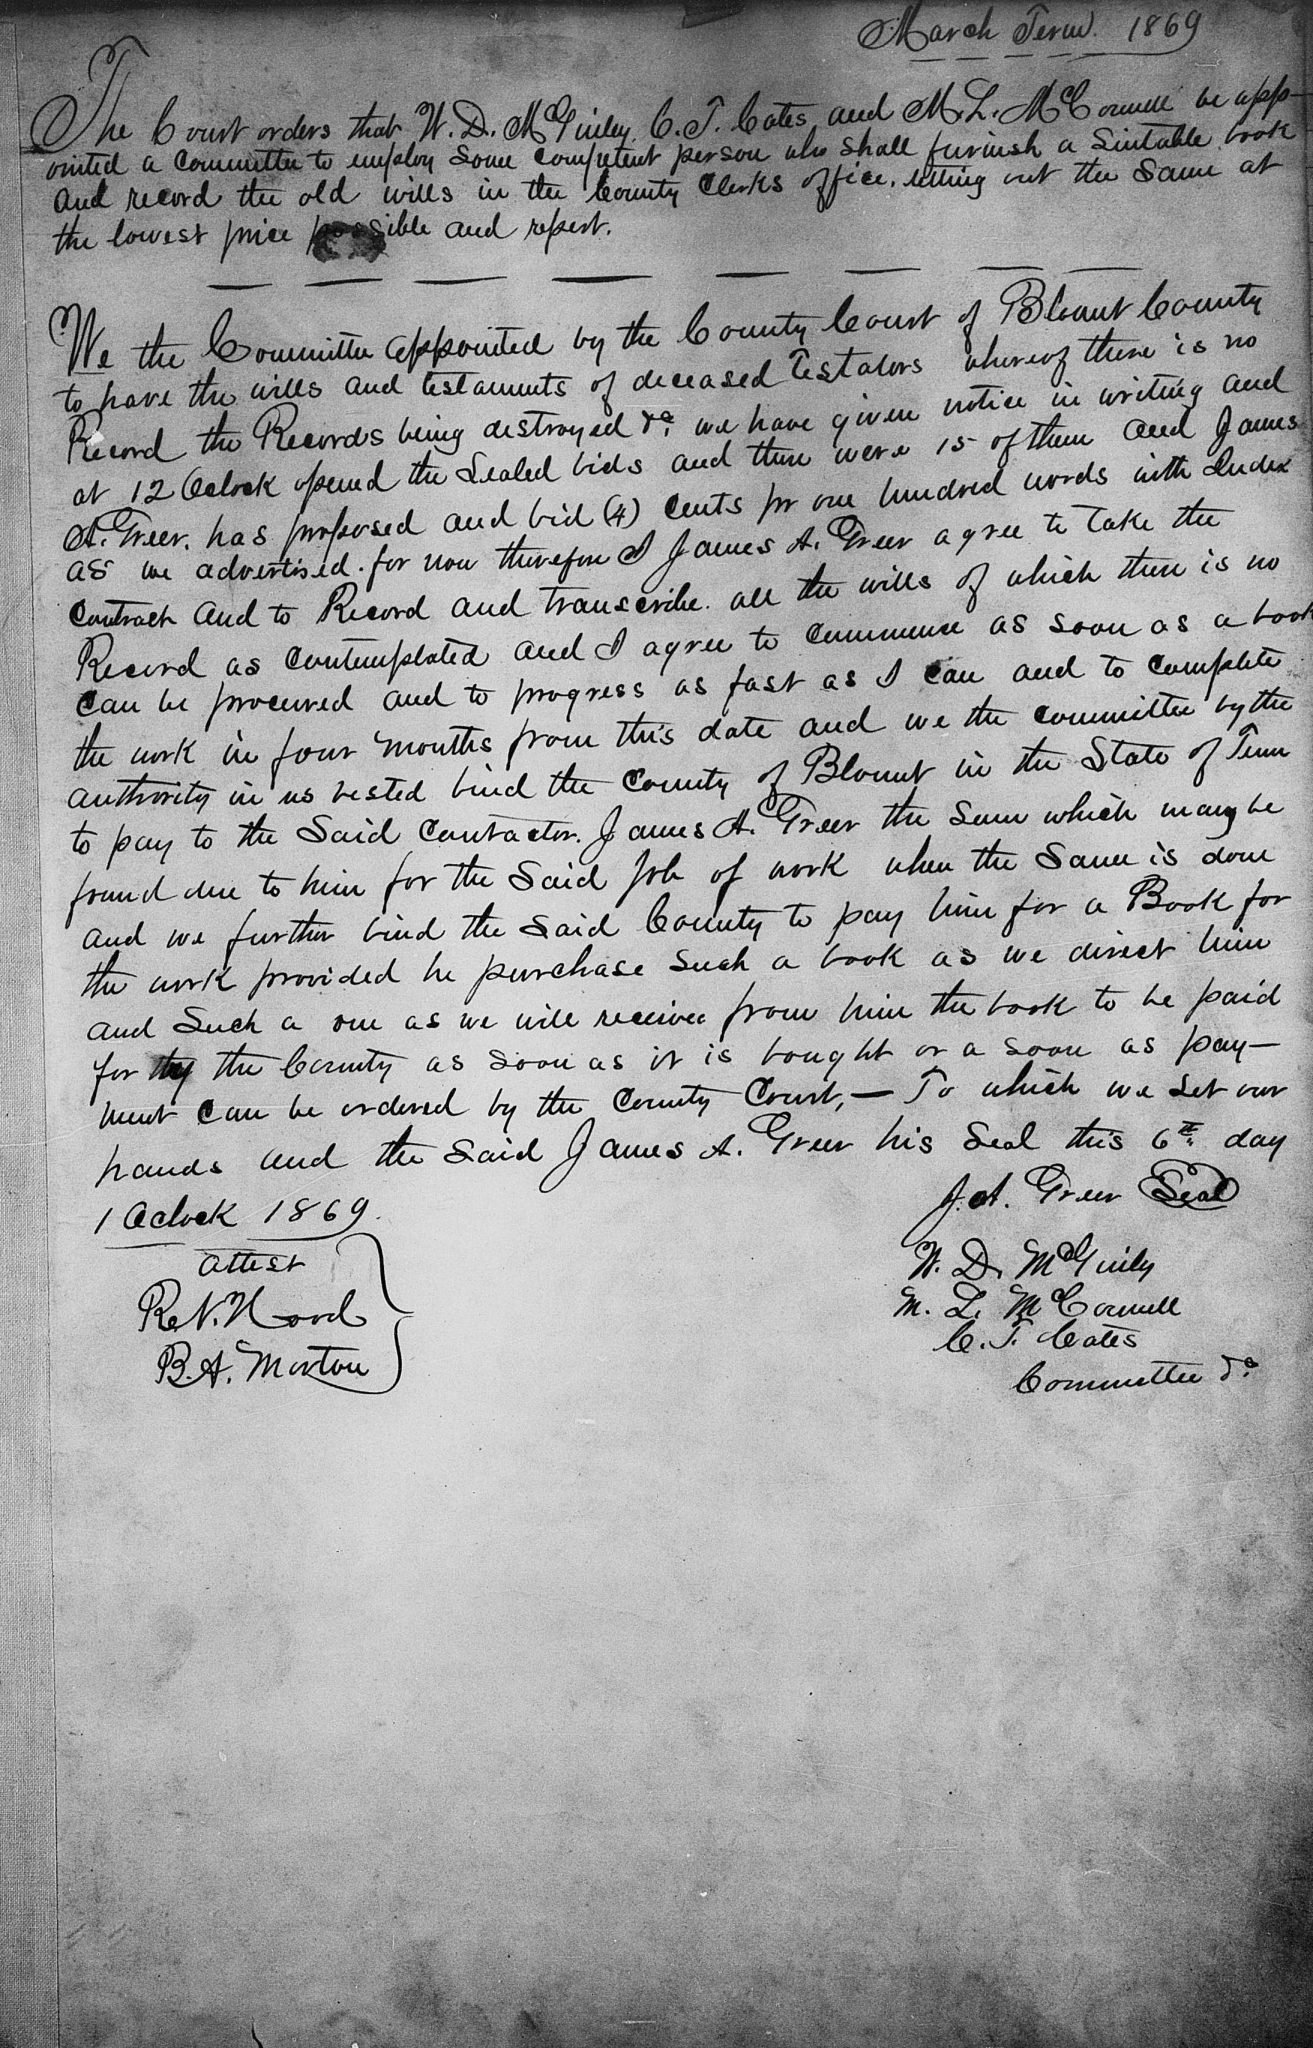 March Term. 1869
The Court orders that W. D. McGinley C. T. Cates and M. L. McConnell be app-
ointed a committee to employ some competent person who shall furnish a Suitable book
and record the old wills in the County Clerks office, letting out the Same at
the lowest price possible and report.
We the Committee appointed by the County Court of Blount County
to have the wills and testaments of deceased Testators whereof there is no
Record the Records being destroyed &c. we have given notice in writing and
at 12 Oclock opened the Sealed bids and there were 15 of them and James
A. Greer. has proposed and bid (4) cents pr one hundred words with Index
as we advertised. for now therefore I James A. Greer agree to take the
contract and to Record and transcribe. all the wills of which there is no
Record as contemplated and I agree to commence as soon as a book
can be procured and to progress as fast as I can and to complete
the work in four months from this date and we the committee by the
authority in us vested bind the County of Blount in the State of Tenn
to pay to the Said Contractor. James A. Greer the Sum which may be
found due to him for the Said Job of work when the Same is done
and we further bind the Said County to pay him for a Book for
the work provided he purchase Such a book as we direct him
and Such a one as we will receive from him the book to be paid
for by the County as soon as it is bought or a soon as pay-
ment can be ordered by the County Court,— To which we Set our
hands and the Said James A. Greer his Seal this 6th day
1 Oclock 1869.
J. A. Greer Seal
attest
W. D. McGinly
M. L. McConnell
C. T. Cates
Committee &c
B. A. Morton